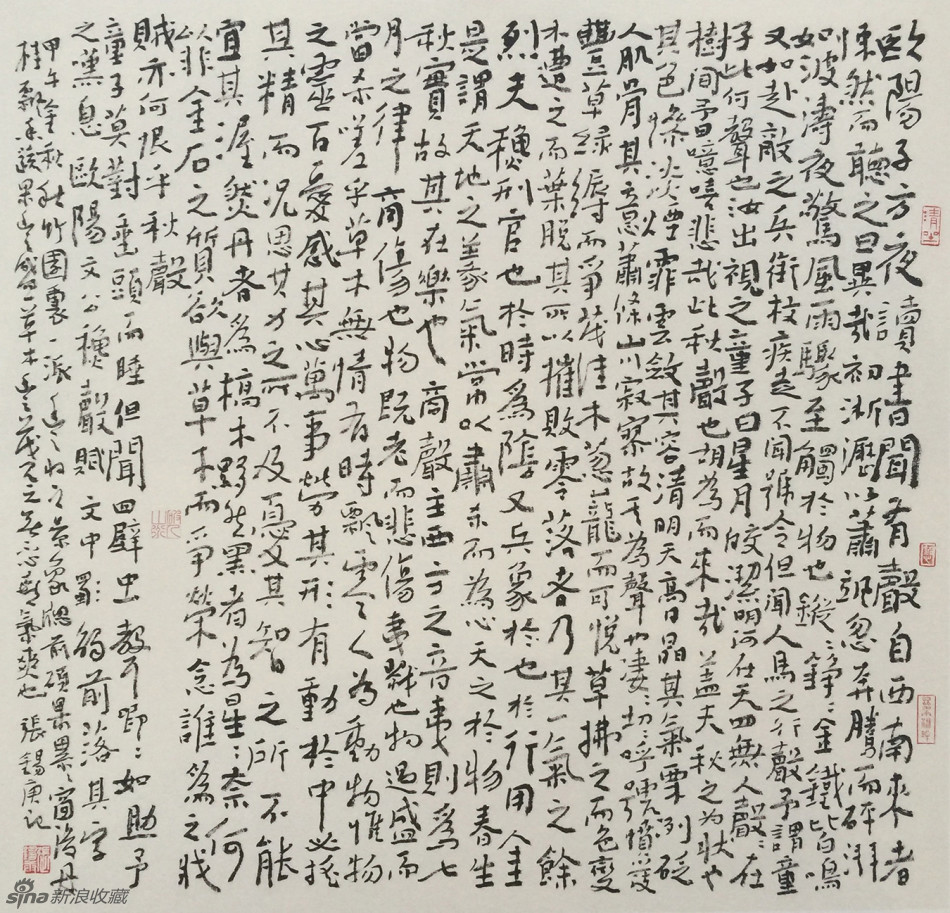 歐陽子方夜讀書聞有聲自西南來者
悚然而聽之曰異哉初淅瀝以蕭颯忽奔騰而砰湃
如波濤夜驚風雨驟至觸於物也鏦鏦錚錚金鐵皆鳴
又如赴敵之兵銜枚疾走不聞號令但聞人馬之行聲予謂童
子此何聲也汝出視之童子曰星月皎潔明河在天四無人聲聲在
樹間予曰噫嘻悲哉此秋聲也胡為而來哉蓋夫秋之為狀也
其色慘淡煙霏雲斂其容清明天高日晶其氣栗冽砭
人肌骨其意蕭條山川寂寥故其為聲也凄凄切切呼號憤發
豐草綠縟而爭茂佳木蔥蘢而可悅草拂之而色變
木遭之而葉脫其所以摧敗零落者乃其一氣之餘
烈夫穐刑官也於時為陰又兵象於也於行用金
是謂天地之義氣常以肅杀而為心天之於物春生
秋實故其在樂也商聲主西方之音夷則為七
月之律商傷也物既老而悲傷夷戮也物過盛而
當杀嗟乎草木無情有時飄零人為動物惟物
之靈百憂感其心萬事勞其形有動於中必搖
其精而況思其力之所不及憂其智之所不能
宜其渥然丹者為槁木黟然黑者為星星奈何
以非金石之質欲與草木而爭榮念誰為之戕
賊亦何恨乎秋聲
童子莫對垂頭而睡但聞四壁虫聲唧唧如助予
之嘆息歐陽文公穐聲賦文中前落其字
甲午金秋於竹園裏一派景象前碩果窗後丹
桂飄香草木氣爽也張錫庚記
sina新浪收藏